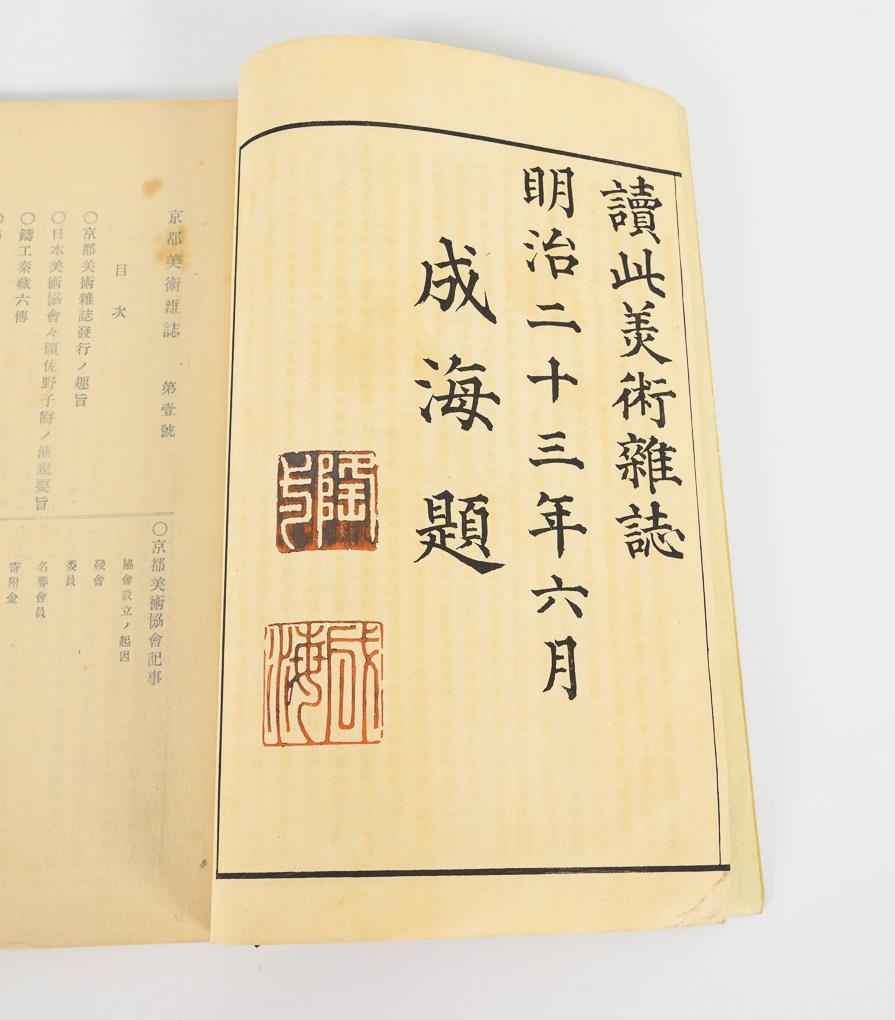 讀此美術雜誌
明治二十三年六月
成海題
成海
京都美術雜誌 第壹號
目次
○京都美術雜誌發行ノ趣旨
○日本美術協會々頭佐野子爵ノ演說要旨
○鑄工秦藏六傳
○京都美術協會記事
協會設立ノ起因
發會
委員
名譽會員
寄附金